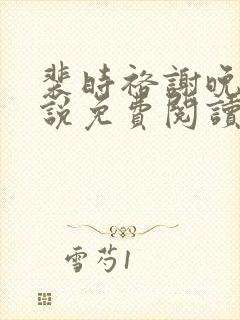 裴時裕謝晚
說免費閱讀
雪芍1